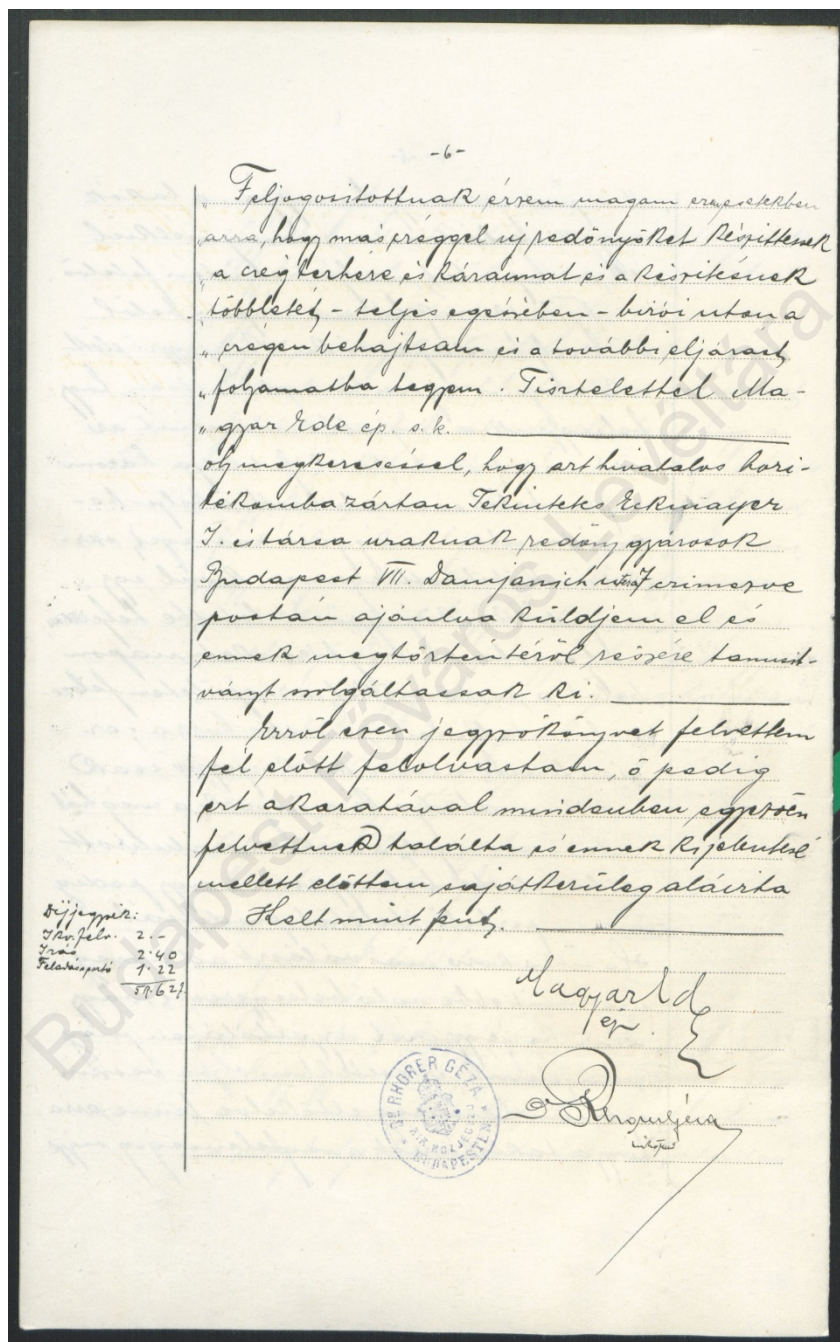 -6-
„Feljogositottnak érzem magam
„arra, hogy más céggel uj redőnyöket készittessek
„a cég terhére és káraimat és a készitésnek
„többletét, - teljes egészében - birói uton a
„cégen behajtsam és a további eljárást,
„folyamatba tegyem. Tisztelettel Ma-
„gyar Ede ép. s. k.
oly megkereséssel, hogy azt hivatalos bori-
tékomba zártan Tekintetes Eckmayer
J. és társa uraknak redőny gyárosok
Budapest VII. Damjanich utcza 7 czimezve
postán ajánlva küldjem el és
ennek megtörténtéről részére tanusit-
ványt szolgáltassak ki.
Erről ezen jegyzőkönyvet felvettem
fél előtt felolvastam, ő pedig
ezt akaratával mindenben egyezően
felvettnek találta és ennek kijelentése
mellett előttem sajátkezüleg aláirta
Kelt mint fent.
Dijjegyzék:
Jkv. felv. 2.-
Irás 2.40
Feladás, portó 1.22
5K.62f.
Magyar Ede
ép.
Dr Rhorer Géza
DR RHORER GÉZA
KIR. KÖZJEGYZŐ
BUDAPESTEN
Budapest Főváros Levéltára